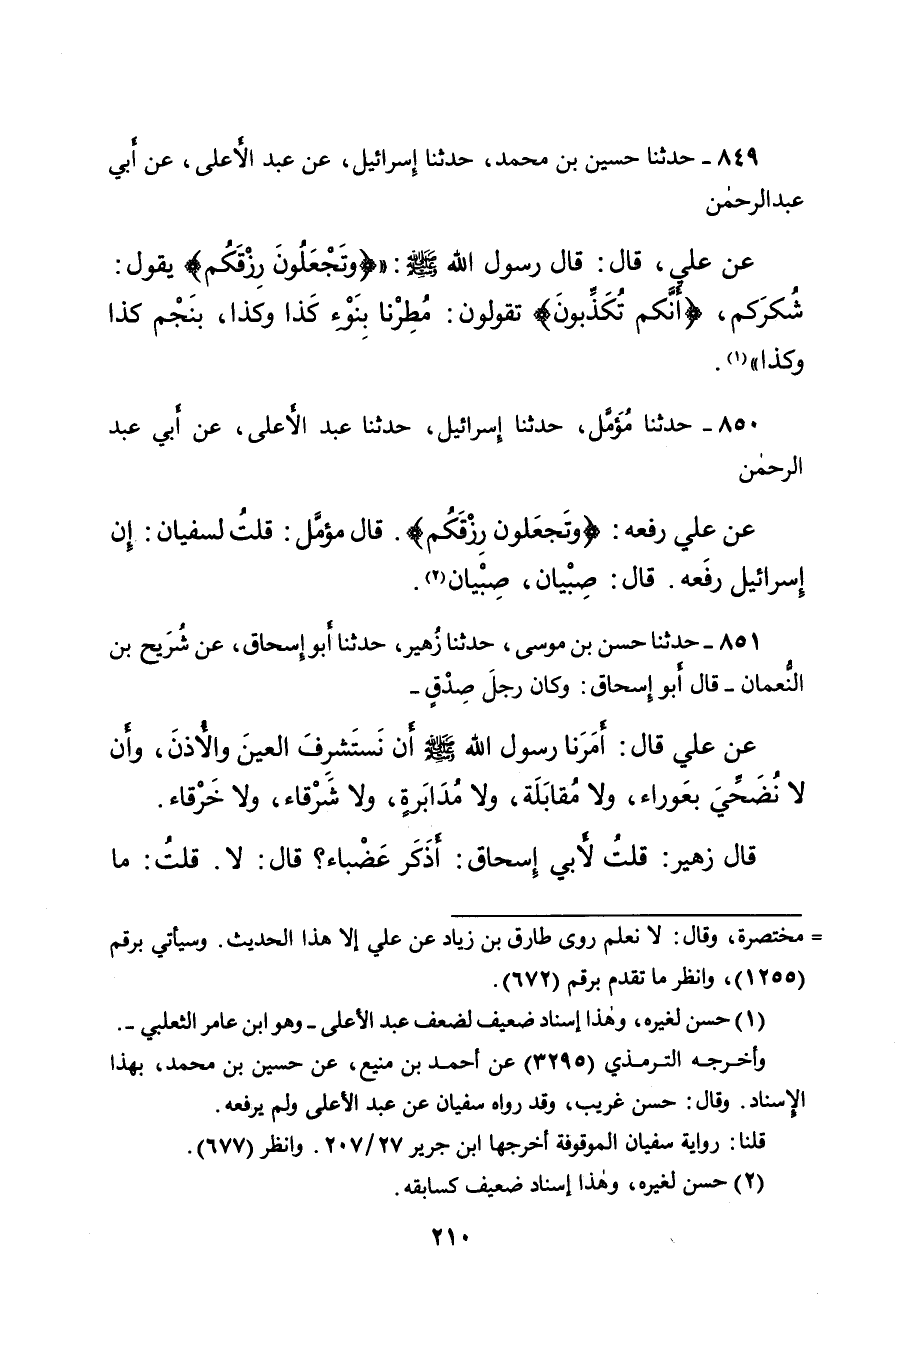 ٨٤٩ ـ حدثنا حسين بن محمد، حدثنا إسرائيل، عن عبد الأَعلى، عن أَبي
عبدالرحمٰن
عن علي، قال: قال رسول الله ﷺ: «﴿وتَجْعَلُونَ رِزْقَكُم﴾ يقول:
شُكرَكم، ﴿أَنَّكم تُكَذِّبونَ﴾ تقولون: مُطِرْنا بِنَوْءِ كَذا وكذا، بنَجْم كذا
وكذا»(١).
٨٥٠ ـ حدثنا مُؤَمَّل، حدثنا إسرائيل، حدثنا عبد الأَعلى، عن أَبي عبد
الرحمٰن
عن علي رفعه: ﴿وتَجعَلون رِزْقَكُم﴾. قال مؤمَّل: قلتُ لسفيان: إن
إسرائيل رفَعه. قال: صِبْيان، صِبْيان(٢).
٨٥١ ـ حدثنا حسن بن موسى، حدثنا زُهير، حدثنا أَبو إسحاق، عن شُرَيح بن
النُّعمان ـ قال أَبو إسحاق: وكان رجلَ صِدْقٍ ـ
عن علي قال: أَمَرَنا رسول الله ﷺ أَن نَستَشرِفَ العينَ والأُذنَ، وأَن
لا نُضَحِّيَ بعَوراء، ولا مُقابَلَة، ولا مُدَابَرةٍ، ولا شَرْقاء، ولا خَرْقاء.
قال زهير: قلتُ لأَبي إسحاق: أَذَكَر عَضْباء؟ قال: لا. قلتُ: ما
= مختصرة، وقال: لا نعلم روى طارق بن زياد عن علي إلا هذا الحديث. وسيأتي برقم
(١٢٥٥)، وانظر ما تقدم برقم (٦٧٢).
(١) حسن لغيره، وهٰذا إسناد ضعيف لضعف عبد الأعلى ـ وهو ابن عامر الثعلبي ـ.
وأخرجه الترمذي (٣٢٩٥) عن أحمد بن منيع، عن حسين بن محمد، بهذا
الإسناد. وقال: حسن غريب، وقد رواه سفيان عن عبد الأعلى ولم يرفعه.
قلنا: رواية سفيان الموقوفة أخرجها ابن جرير ٢٠٧/٢٧. وانظر (٦٧٧).
(٢) حسن لغيره، وهٰذا إسناد ضعيف كسابقه.
٢١٠